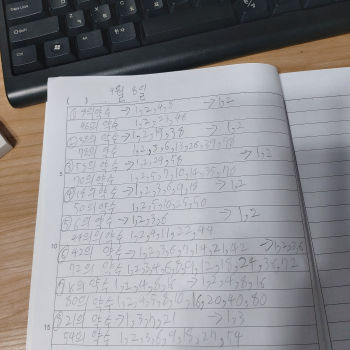 9월 8일
1, 2, 4, 8 → 1, 2
46의 약수 1, 2, 23, 46
② 38의 약수 → 1, 2, 19, 38 → 1, 2
78의 약수 1, 2, 3, 6, 13, 26, 39, 78
③ 58의 약수 → 1, 2, 29, 58 → 1, 2
70의 약수 1, 2, 5, 7, 10, 14, 35, 70
④ 18의 약수 → 1, 2, 3, 6, 9, 18 → 1, 2
50의 약수 1, 2, 5, 10, 25, 50
⑤ 6의 약수 → 1, 2, 3, 6 → 1, 2
44의 약수 1, 2, 4, 11, 22, 44
⑥ 42의 약수 → 1, 2, 3, 6, 7, 14, 21, 42 → 1, 2, 3, 6
72의 약수 1, 2, 3, 4, 6, 8, 9, 12, 18, 24, 36, 72
⑦ 16의 약수 1, 2, 4, 8, 16 → 1, 2, 4, 8, 16
80의 약수 1, 2, 4, 5, 8, 10, 16, 20, 40, 80
⑧ 21의 약수 → 1, 3, 7, 21 → 1, 3
54의 약수 1, 2, 3, 6, 9, 18, 27, 54